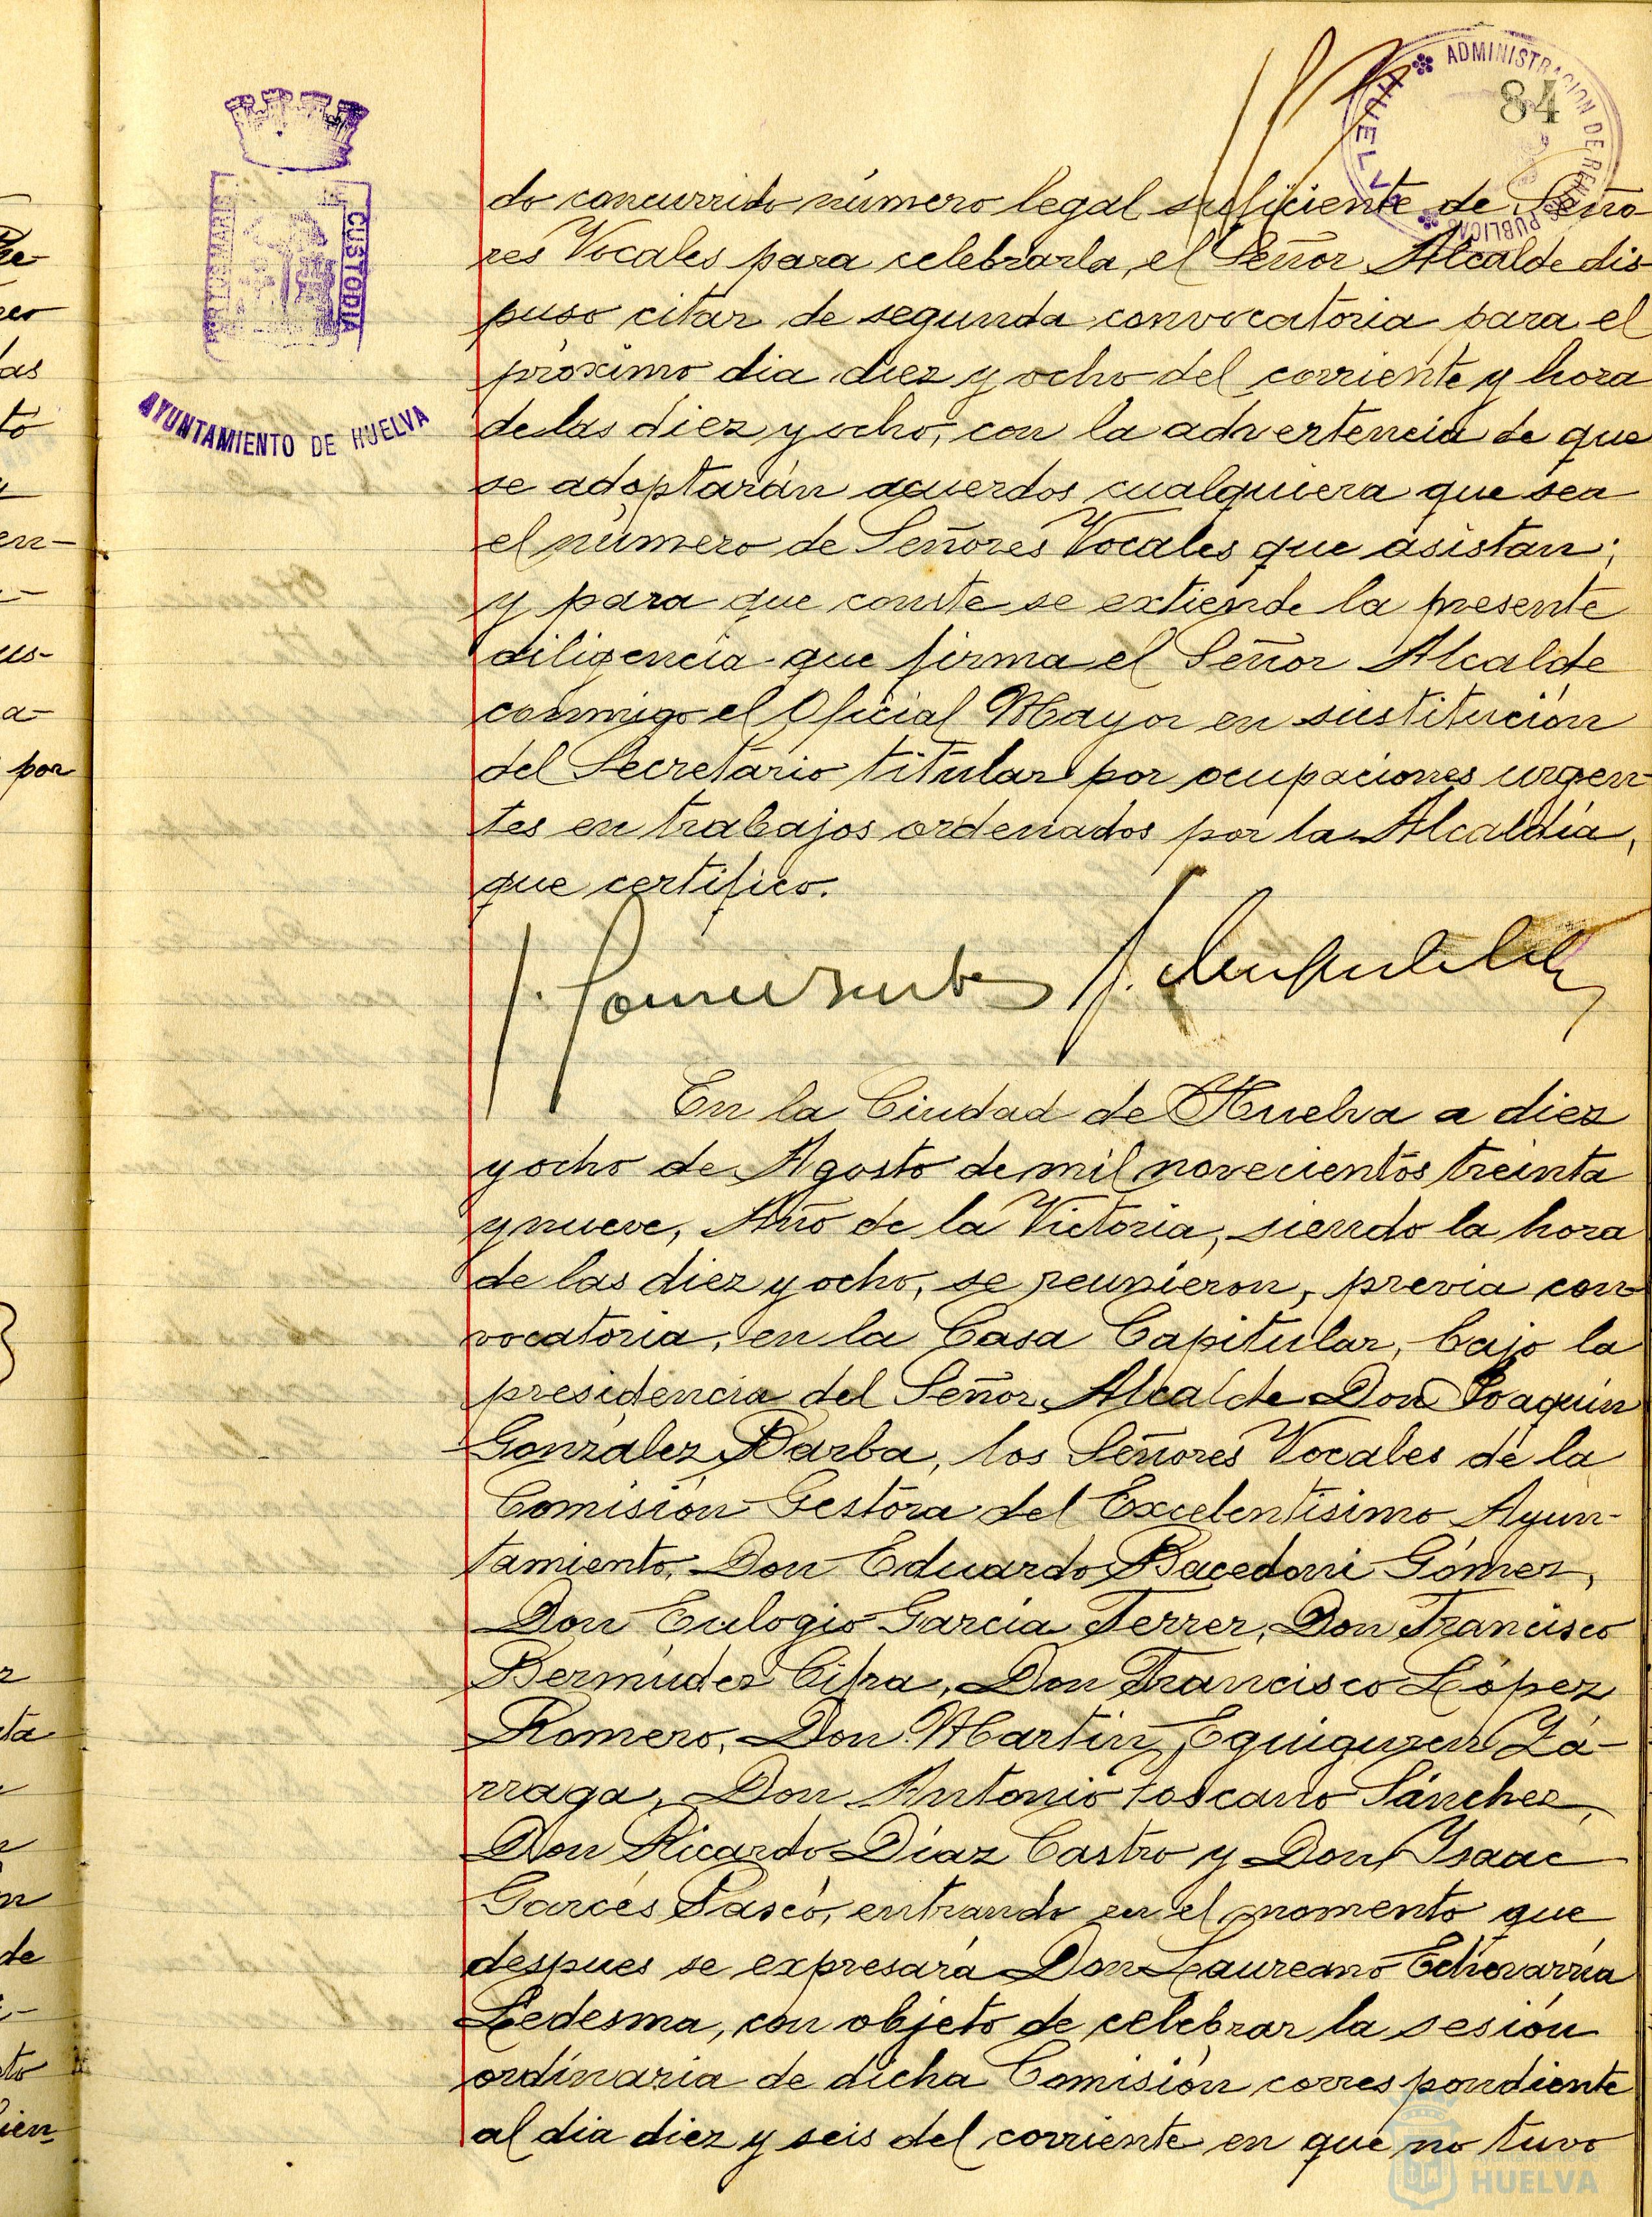 84
ADMINISTRACION DE RENTAS PUBLICAS
HUELVA
PORTUS MARIS
CUSTODIA
AYUNTAMIENTO DE HUELVA
do concurrido número legal suficiente de Seño-
res Vocales para celebrarla, el Señor Alcalde dis-
puso citar de segunda convocatoria para el
próximo dia diez y ocho del corriente y hora
de las diez y ocho, con la advertencia de que
se adoptarán acuerdos cualquiera que sea
el número de Señores Vocales que asistan;
y para que conste se extiende la presente
diligencia que firma el Señor Alcalde
conmigo el Oficial Mayor en sustitución
del Secretario titular por ocupaciones urgen-
tes en trabajos ordenados por la Alcaldía,
que certifico.
En la Ciudad de Huelva a diez
y ocho de Agosto de mil novecientos treinta
y nueve, Año de la Victoria, siendo la hora
de las diez y ocho, se reunieron, previa con-
vocatoria, en la Casa Capitular, bajo la
presidencia del Señor Alcalde Don Joaquín
González Barba, los Señores Vocales de la
Comisión Gestora del Excelentísimo Ayun-
tamiento, Don Eduardo Bacedoni Gómez,
Don Eulogio García Ferrer, Don Francisco
Bermúdez Cifra, Don Francisco López
Romero, Don Martín Eguiguren Zá-
rraga, Don Antonio Toscano Sánchez,
Don Ricardo Díaz Castro y Don Isaac
Garcés Pascó, entrando en el momento que
despues se expresará Don Laureano Echevarría
Ledesma, con objeto de celebrar la sesión
ordinaria de dicha Comisión correspondiente
al dia diez y seis del corriente en que no tuvo
Ayuntamiento de
HUELVA